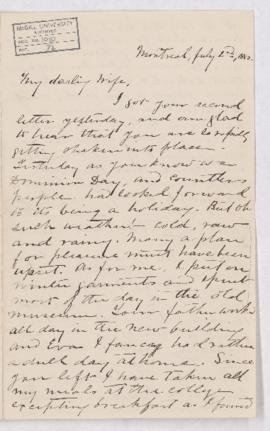 McGILL UNIVERSITY
ARCHIVES
ACC. NO.
REF.
Montreal, July 2nd,
My darling Wife,
I got your second
letter yesterday, and am glad
to hear that you are
getting shaken into place.
Yesterday as you know was
Dominion Day, and countless
people had looked forward
to its being a holiday. But oh
such weather - cold, raw
and rainy. Many a plan
for pleasure must have been
upset. As for me, I put on
winter garments and spent
most of the day in the old
museum. Your father works
all day in the new building
and Eva I fancy had rather
a dull day at home. Since
you left I have taken all
my meals at the college
excepting breakfast as I found